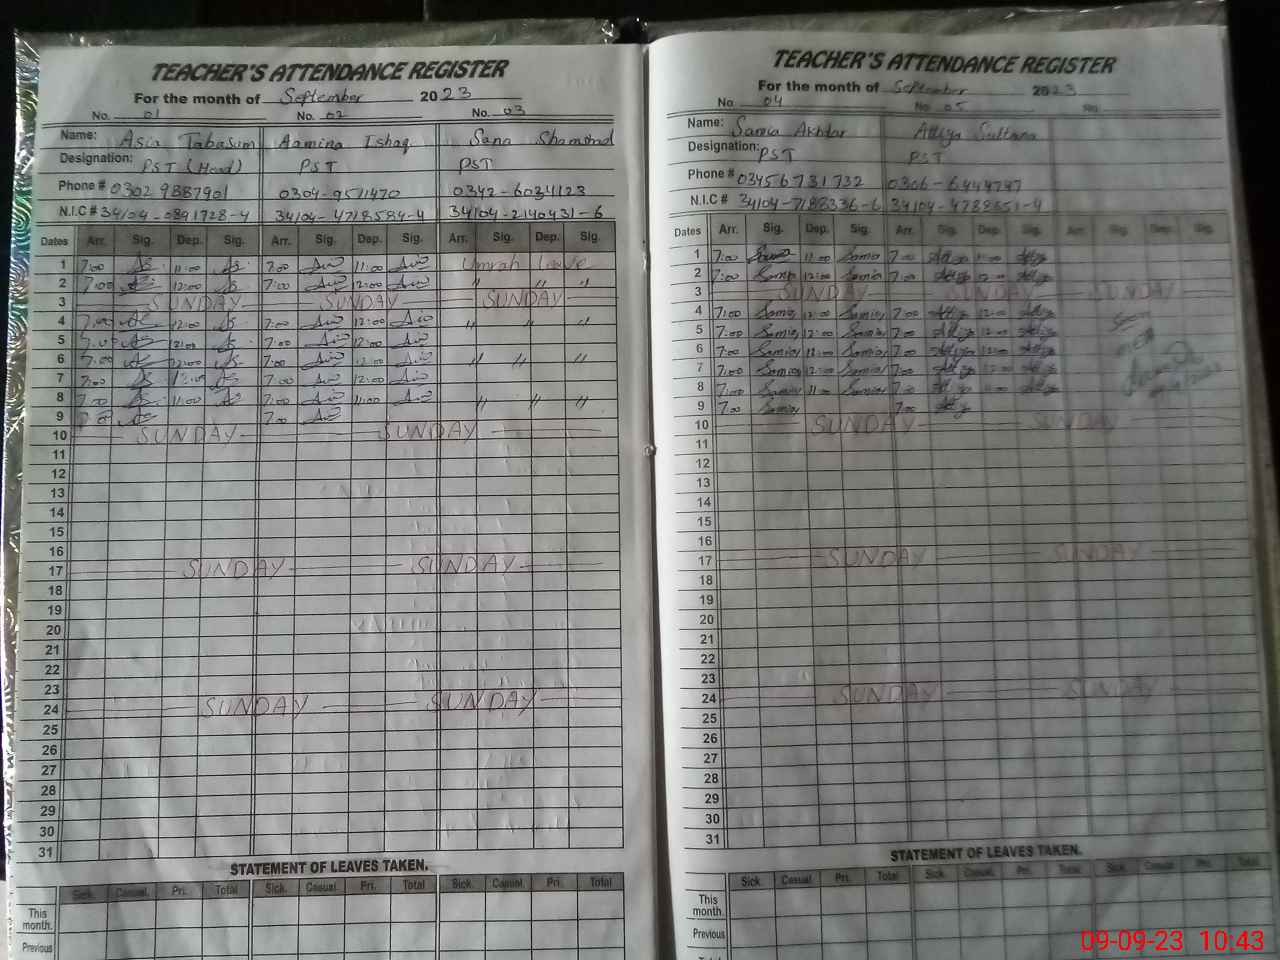 TEACHER'S ATTENDANCE REGISTER
For the month of September 2023
No. 01 No. 02 No. 03
Name: Asia Tabasum Aamina Ishaq Sana Shamshad
Designation: PST (Head) PST PST
Phone # 0302 9887901 0304-9511470 0342-6034123
N.I.C # 34104-0891728-4 34104-4718584-4 34104-2140431-6
Dates Arr. Sig. Dep. Sig. Arr. Sig. Dep. Sig. Arr. Sig. Dep. Sig.
1 7:00 11:00 7:00 11:00 Umrah leave
2 7:00 12:00 7:00 12:00 " " "
3 SUNDAY SUNDAY SUNDAY
4 7:00 12:00 7:00 12:00 " " "
5 7:00 12:00 7:00 12:00
6 7:00 12:00 7:00 12:00 " " "
7 7:00 7:00 12:00
8 7:00 11:00 7:00 11:00 " " "
9 7:00
10 SUNDAY SUNDAY
11
12
13
14
15
16
17 SUNDAY SUNDAY
18
19
20
21
22
23
24 SUNDAY SUNDAY
25
26
27
28
29
30
31
STATEMENT OF LEAVES TAKEN.
Sick. Casual. Pri. Total Sick. Casual. Pri. Total Sick. Casual. Pri. Total
This month.
Previous
TEACHER'S ATTENDANCE REGISTER
For the month of September 2023
No. 04 No. 05 No.
Name: Samia Akhtar Attiya Sultana
Designation: PST PST
Phone # 03456731732 0306-6444797
N.I.C # 34104-7188336-6 34104-4788851-4
Dates Arr. Sig. Dep. Sig. Arr. Sig. Dep. Sig. Arr. Sig. Dep. Sig.
1 7:00 Samia 11:00 Samia 7:00 11:00
2 7:00 Samia 12:00 Samia 7:00 12:00
3 SUNDAY SUNDAY SUNDAY
4 7:00 Samia 12:00 Samia 7:00 12:00
5 7:00 Samia 12:00 Samia 7:00 12:00
6 7:00 Samia 12:00 Samia 7:00 12:00
7 7:00 Samia 12:00 Samia 7:00 12:00
8 7:00 Samia 11:00 Samia 7:00 11:00
9 7:00 Samia 7:00
10 SUNDAY SUNDAY
11
12
13
14
15
16
17 SUNDAY SUNDAY
18
19
20
21
22
23
24 SUNDAY SUNDAY
25
26
27
28
29
30
31
STATEMENT OF LEAVES TAKEN.
Sick. Casual. Pri. Total Sick. Casual. Pri. Total Sick. Casual. Pri. Total
This month.
Previous
09-09-23 10:43